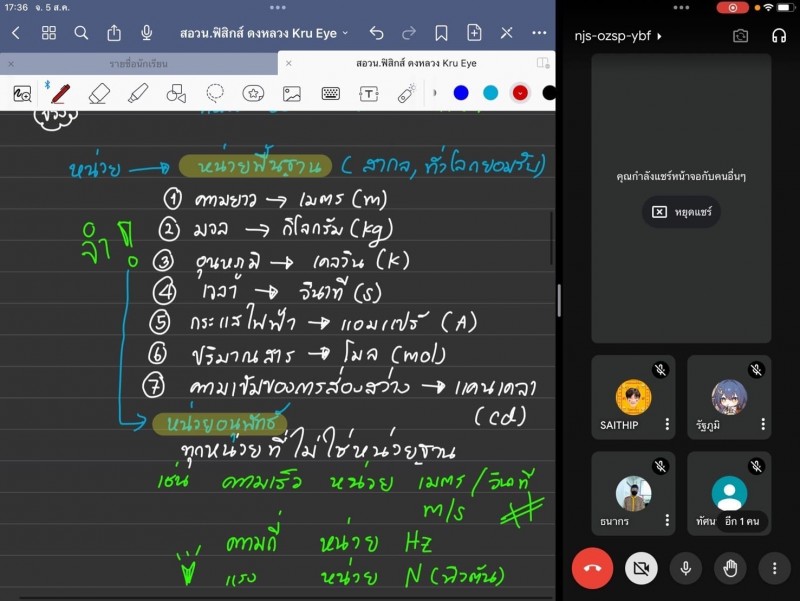 17:36 จ. 5 ส.ค.
สอวน.ฟิสิกส์ ดงหลวง Kru Eye
รายชื่อนักเรียน
สอวน.ฟิสิกส์ ดงหลวง Kru Eye
หน่วย → หน่วยพื้นฐาน (สากล, ทั่วโลกยอมรับ)
① ความยาว → เมตร (m)
② มวล → กิโลกรัม (kg)
จำ !
③ อุณหภูมิ → เคลวิน (K)
④ เวลา → วินาที (s)
⑤ กระแสไฟฟ้า → แอมแปร์ (A)
⑥ ปริมาณสาร → โมล (mol)
⑦ ความเข้มของการส่องสว่าง → แคนเดลา
(cd)
หน่วยอนุพัทธ์
ทุกหน่วยที่ไม่ใช่หน่วยฐาน
เช่น ความเร็ว หน่วย เมตร/วินาที
m/s
ความถี่ หน่วย Hz
แรง หน่วย N (นิวตัน)
njs-ozsp-ybf
คุณกำลังแชร์หน้าจอกับคนอื่นๆ
หยุดแชร์
SAITHIP
รัฐภูมิ
ธนากร
ทัศน
อีก 1 คน